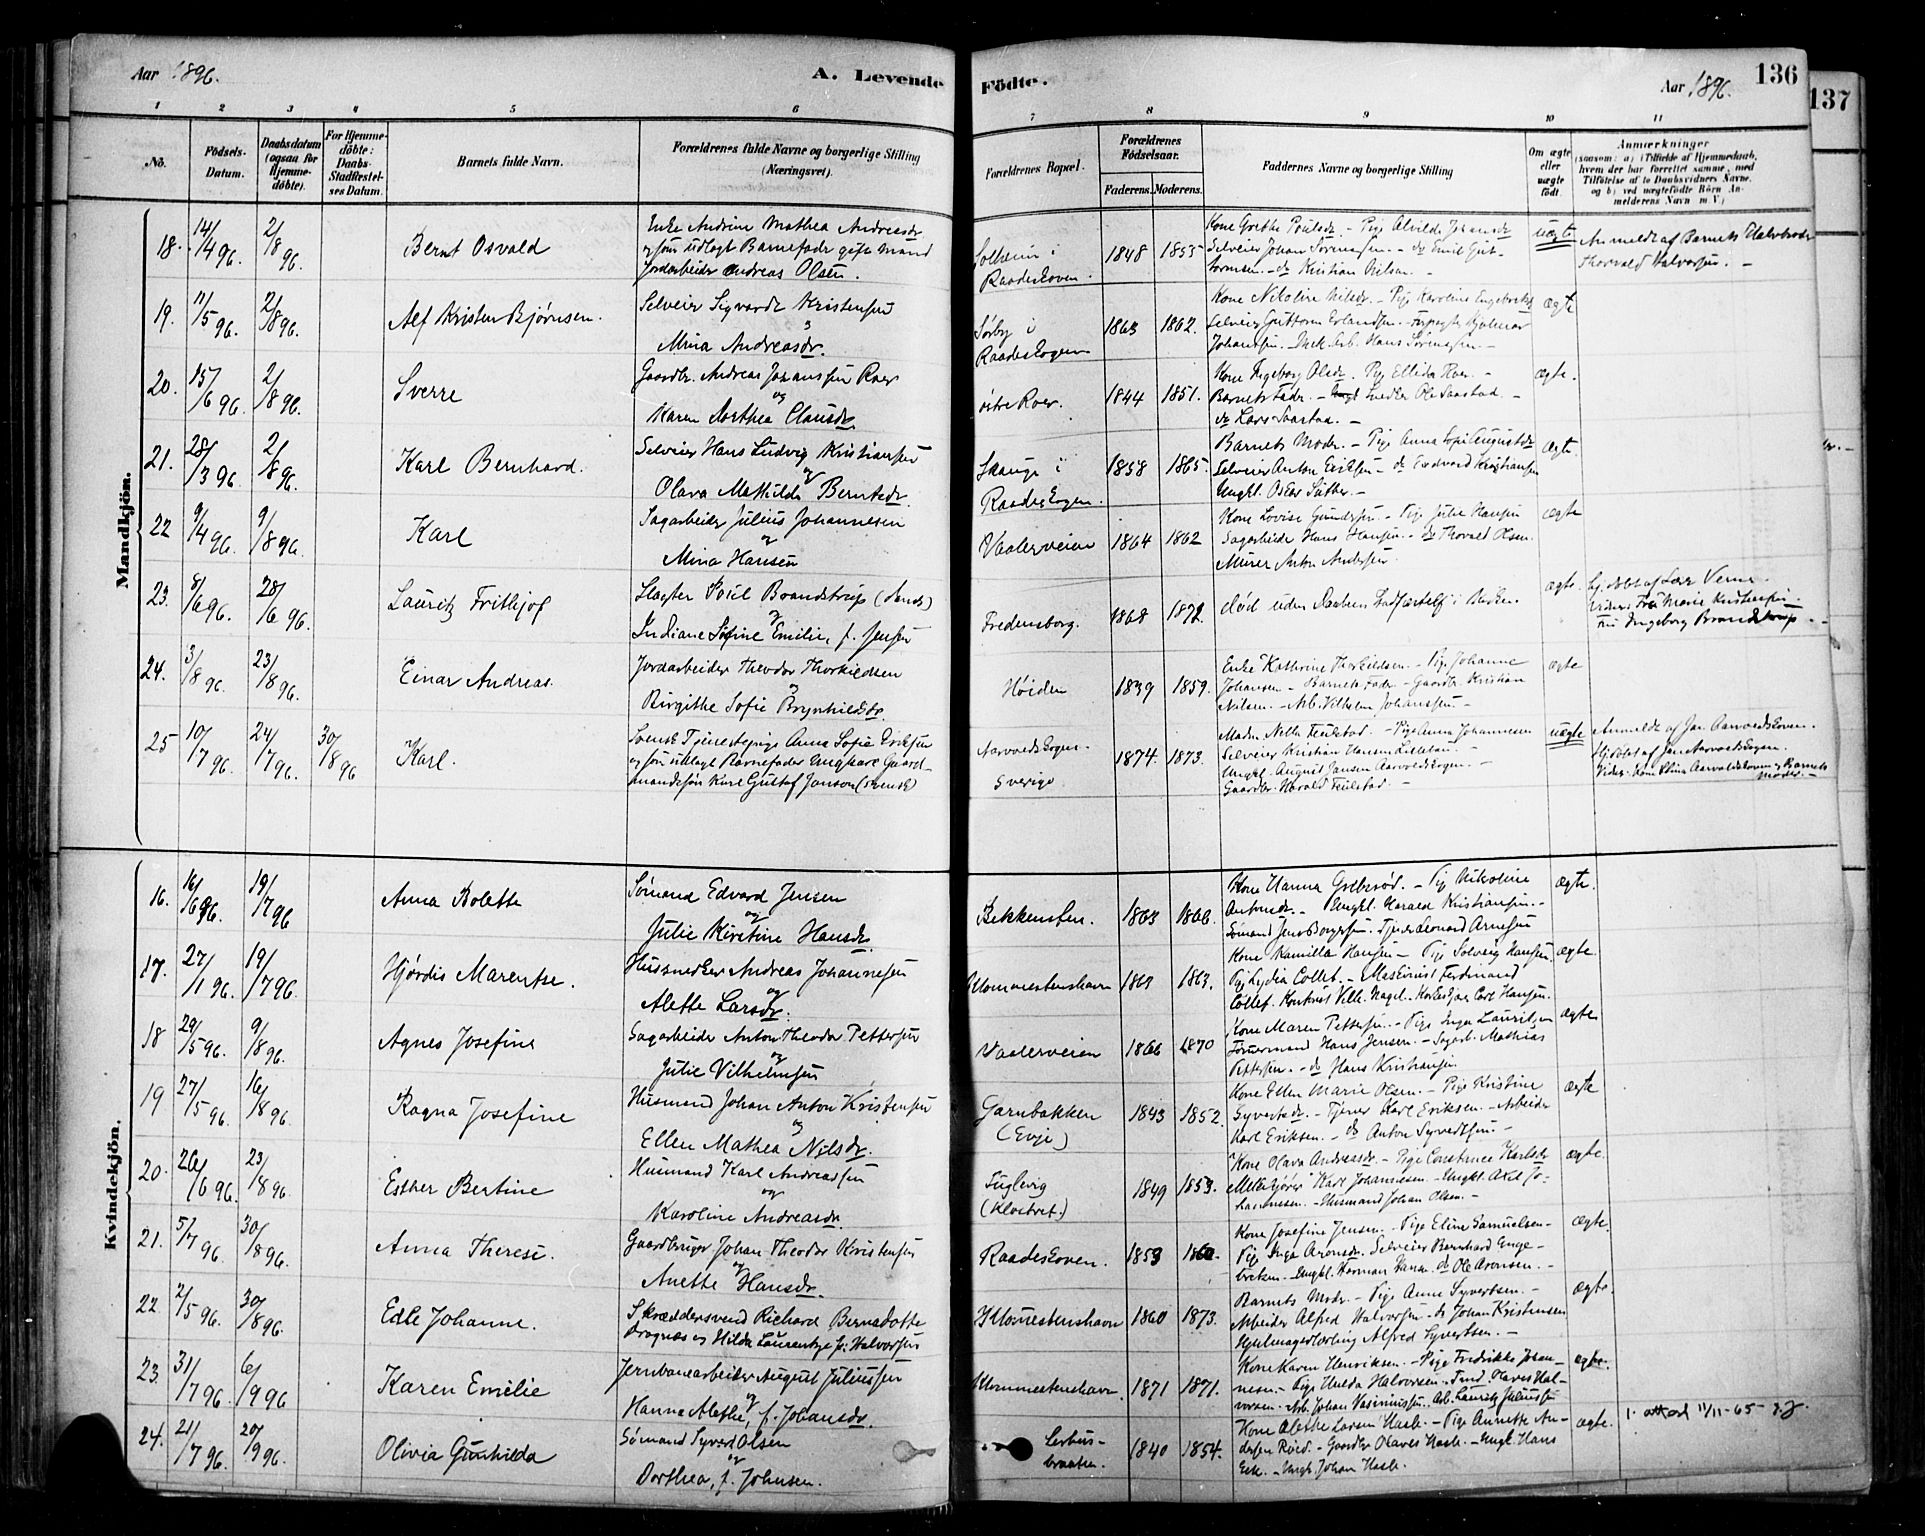 Aar 1896.
A. Levende Födte.
Aar 1896.
136
137
1 2 3 4 5 6 7 8 9 10 11
No.
Födsels-Datum.
Daabsdatum (ogsaa for Hjemme-döbte).
For Hjemme-döbte: Daabs-Stadfæstel-ses Datum.
Barnets fulde Navn.
Forældrenes fulde Navne og borgerlige Stilling (Næringsvei).
Forældrenes Bopæl.
Forældrenes Födselsaar.
Faderens. Moderens.
Faddernes Navne og borgerlige Stilling
Om ægte eller uægte födt.
Anmærkninger
(saasom: a) i Tilfælde af Hjemmedaab, hvem der har forrettet samme, med Tilföielse af to Daabsvidners Navne, og b) ved uægtefödte Börn Anmelderens Navn m. V.)
Mandkjön.
18. 14/4 96. 2/8 96. Bernt Osvald
Enke Andrine Mathea Andreasdr
og som udlagt Barnefader gift Mand
Jordarbeider Andreas Olsen.
Solheim i
Raadeskoven
1848 1855
Kone Grethe Poulsdr - Pige Alvilde Johansdr
Selveier Johan Sørensen - do Emil Gut-
tormsen - do Kristian Nilsen -
uægte
Anmeldt af Barnets Halvbroder
Thorvald Halvorsen. -
19. 11/5 96. 2/8 96. Alf Kristen Bjørnsen.
Selveier Sigvardt Kristensen
Mina Andreasdr.
Sørby i
Raadeskogen
1863 1862.
Kone Nikoline Nilsdr. - Pige Karoline Engebretsd
Selveier Guttorm Erlandsen - Forpagter Hjalmar
Johansen. - Hans Sørensen -
ægte
20. 15/6 96. 2/8 96. Sverre
Gaardbr. Andreas Johansen Roer
og
Karen Dorthea Clausdr.
østre Roer.
1844 1851.
Kone Ingeborg Olsdr. Pige Ellida Roer. -
Barnets Fader. - Snedker Ole Saastad. -
do Lars Saastad. -
ægte.
21. 28/3 96. 2/8 96. Karl Bernhard.
Selveier Hans Ludvig Kristiansen
og
Olava Mathilde Berntsdr.
Skauge i
Raadeskogen.
1858 1865.
Barnets Moder. - Pige Anna Sofie Augustdr
Selveier Anton Eriksen - do Edvard Kristiansen
Ungk. Oskar Sæther. -
ægte.
22 9/4 96. 9/8 96. Karl
Sagarbeider Julius Johannesen
og
Mina Hansen
Vaalerveien
1864 1862
Kone Lovise Gundersen. - Pige Julie Hansen
Sagarbeider Hans Hansen. - do Thorvald Olsen.
Murer Anton Andersen
ægte
23. 8/6 96. 28/6 96. Lauritz Frithjof
Slagter Poul Brandstrup (dansk)
og
Indiane Sofine Emilie, f. Jensen
Fredensborg.
1868 1872.
død uden Daabens Stadfæstelse i Kirken.
ægte.
Hj.døbt af Verne.
Vidner: Fru Marie Kristensen
Fru Ingeborg Brandstrup -
24. 3/8 96. 23/8 96. Einar Andreas.
Jordarbeider Theodor Thorkildsen
Birgithe Sofie Brynhildsdr.
Høiden
1839 1859.
Enke Kathrine Thorkildsen. - Pige Johanne
Johansen - Barnets Fader - Gaardbr. Kristian
Nilsen. - Arb. Vilhelm Johansen -
ægte
25 10/7 96. 24/7 96. 30/8 96 Karl.
Svensk Tjenestepige Anna Sofie Eriksen
og som udlagt Barnefader Ungkarl Gaard-
mandssøn Karl Gustaf Janson (svensk)
Aarvoldskogen
Sverige
1874. 1873.
Maden Nelle Feilstad - Pige Anna Johannesen
Selveier Kristian Hansen
Ungk. August Jansen Aarvoldskogen. -
Gaardbr. Harald Feilstad. -
uægte
Anmeldt af Jan Aarvoldskoven.
Hjdøbt af Jan Aarvoldskogen.
Vidner: Kone Stina Aarvoldskoven og Barnets
Moder. -
Kvindekjön.
16. 16/6 96. 19/7 96 Anna Bolette
Sømand Edvard Jensen
og
Julie Kirstine Hansdr.
Bekkensten.
1863 1866.
Kone Hanna Grebsrød. - Pige Nikoline
Antonsdr. - Ungk. Harald Kristiansen. -
Sømand Jens Borgersen. Tjener Leonard Arnesen
ægte.
17. 27/1 96. 19/7 96. Hjørdis Marentse.
Hussnedker Andreas Johannesen
og
Alette Larsdr.
Klommestenshavn
1863 1863.
Kone Kamilla Hansen - Pige Solveig Hansen.
Pige Lydia Collet. - Maskinist Ferdinand
Collet. Kontorist Vilh. Nagel. Carl Hansen.
ægte.
18 29/5 96. 9/8 96. Agnes Josefine
Sagarbeider Anton Theodor Pettersen
og
Julie Vilhelmsen
Vaalerveien
1866 1870
Kone Maren Pettersen. - Pige Inga Lauritsen
Tømmermand Hans Jensen. - Sagarb. Mathias
Pettersen. - do Hans Kristiansen
ægte
19 27/5 96. 16/8 96. Ragna Josefine
Husmand Johan Anton Kristensen
og
Ellen Mathea Nilsdr.
Garnbakken
(Evje)
1843 1852.
Kone Ellen Marie Olsen. - Pige Kristine
Syvertsdr. - Tjener Karl Eriksen. - Arbeider
Karl Eriksen. - do Anton Syvertsen. -
ægte
20. 26/6 96. 23/8 96. Esther Bertine
Husmand Karl Andreassen
og
Karoline Andreasdr.
Fuglevig
(Klostret.)
1849 1853.
Kone Olava Andreasdr. - Pige Constance Karlsdr
Karl Johannesen. - Ungk. Axel Jo-
hannesen. - Husmand Johan Olsen. -
ægte.
21. 5/7 96. 30/8 96. Anna Therese.
Gaardbruger Johan Theodor Kristensen
og
Anette Hansdr.
Raadeskoven.
1853 1860.
Kone Josefine Jensen. - Pige Eline Samuelsen -
Pige Inga Aronsdr. Selveier Bernhard Enge-
bretsen. - Ungk. Herman Hansen do Ole Aronsen. -
ægte.
22. 2/5 96. 30/8 96. Edle Johanne.
Skræddersvend Richard Bernadotte
Dragnæs og Hilda Laurentze f. Halvorsen
Klommestenshavn
1860 1873.
Barnets Moder. - Pige Anna Syvertsen. -
Arbeider Alfred Halvorsen - do Johan Kristensen
Hjulmagerlærling Alfred Syvertsen. -
ægte.
23. 31/7 96. 6/9 96 Karen Emilie
Jernbanearbeider August Juliussen
og
Hanna Alethe, f. Johansdr.
Klommestenshavn.
1871 1871.
Kone Karen Henriksen. - Pige Fredrikke Johan-
nesen. - Pige Hulda Halvorsen. - Olaves Hal-
vorsen. - Arb. Johan Kasimirsen. Arb. Lauritz Juliussen
ægte.
24. 21/7 96. 20/9 96. Olivia Gunhilda
Sømand Syvert Olsen
og
Dorthea, f. Johnsen.
Lerbus-
braaten.
1840 1854.
Kone Alethe Larsen Hasle. - Pige Annette An-
dersen Røed. - Gaardbr Olaves Hasle. - Ungk. Hans
Eck. - Ungk. Johan Hasle.
ægte.
1. attest 11/11-65